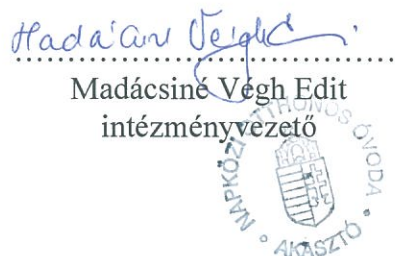 Madácsiné Végh Edit
intézményvezető
NAPKÖZI OTTHONOS ÓVODA
AKASZTÓ